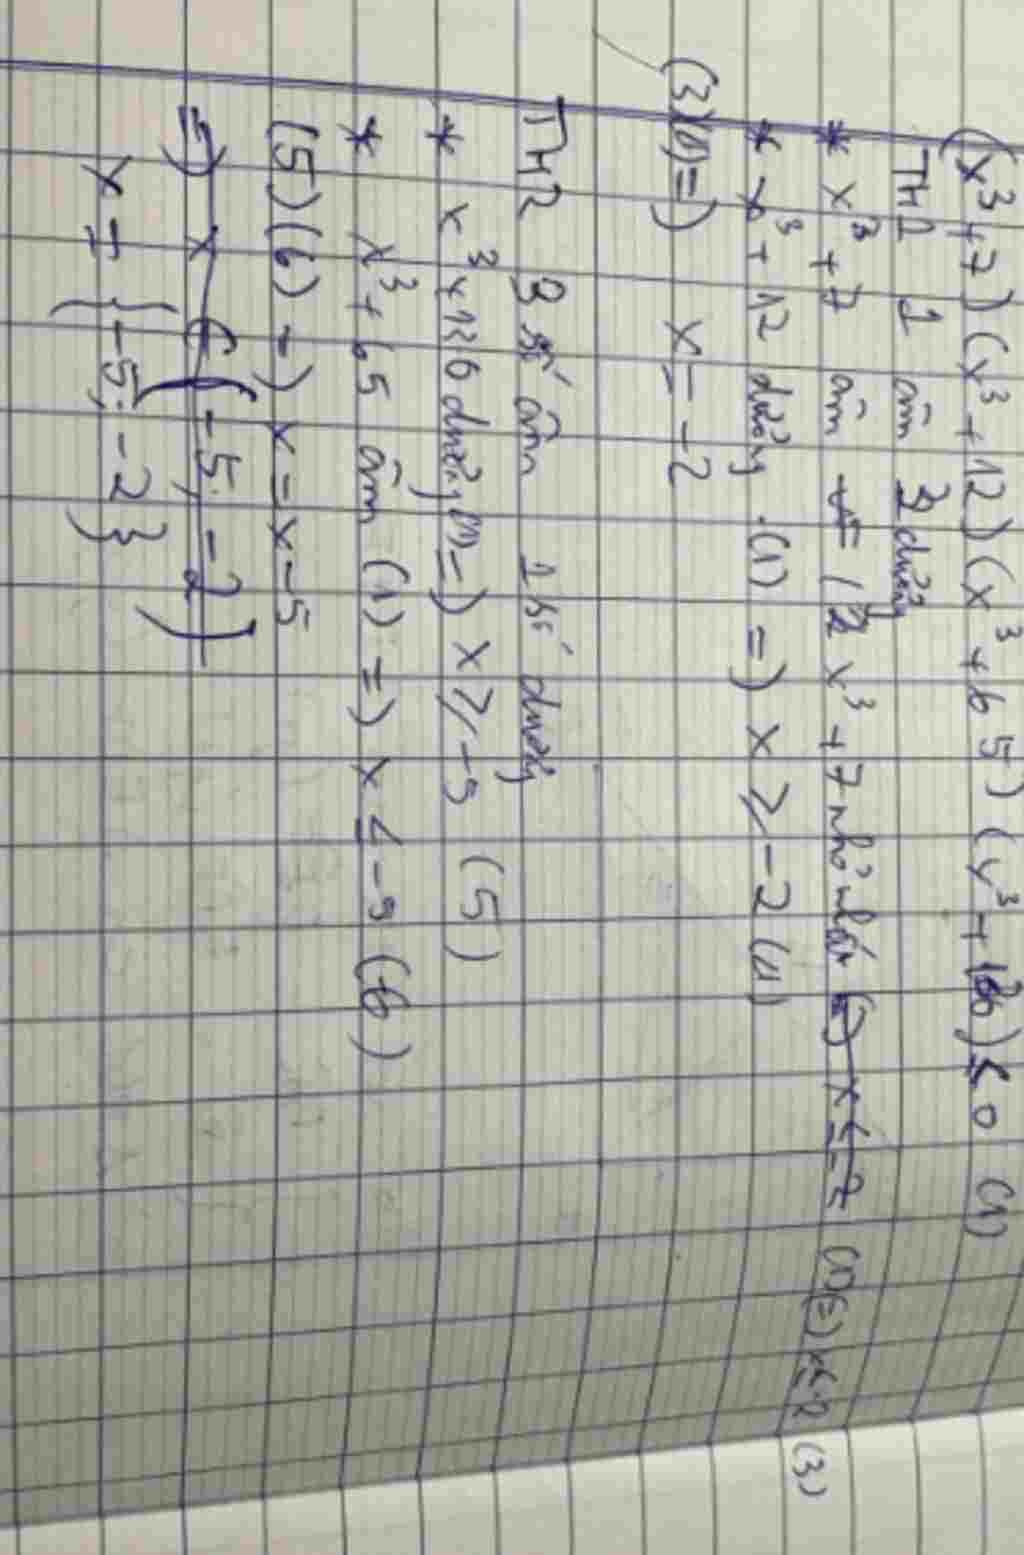 (x³+7)(x³+12)(x³+65)(x³+126)≤0 (1)
TH1 1 âm 3 dương
* x³+7 âm x³+7 nhỏ nhất x≤-2 (3)
* x³+12 dương (1) =) x ≥ -2 (4)
(3)(4)=) x = -2
TH2 3 số âm 1 số dương
* x³+126 dương (1) =) x ≥ -5 (5)
* x³+65 âm (1) =) x ≤ -5 (6)
(5)(6) =) x = x-5
=) x ∈ (-5, -2)
x = {-5; -2}